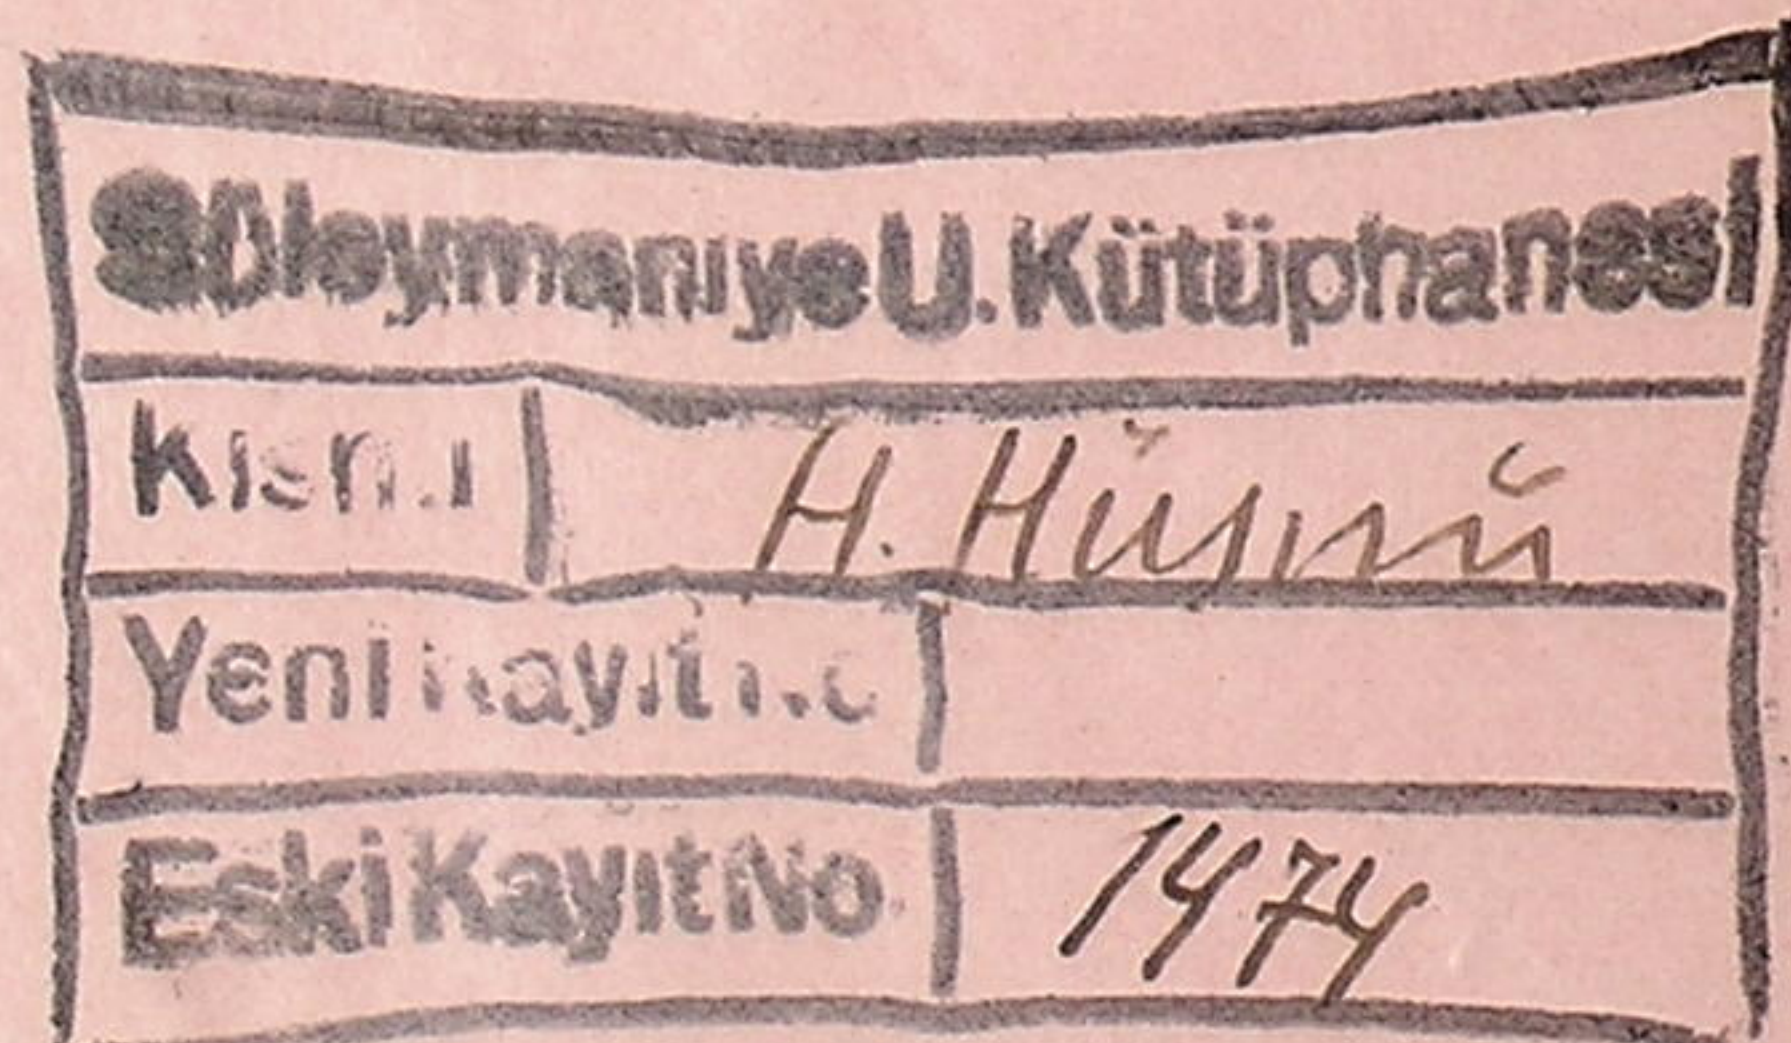 Süleymaniye U. Kütüphanesi
Kısmı H. Hüsnü
Yeni Kayıt No
Eski Kayıt No 1474